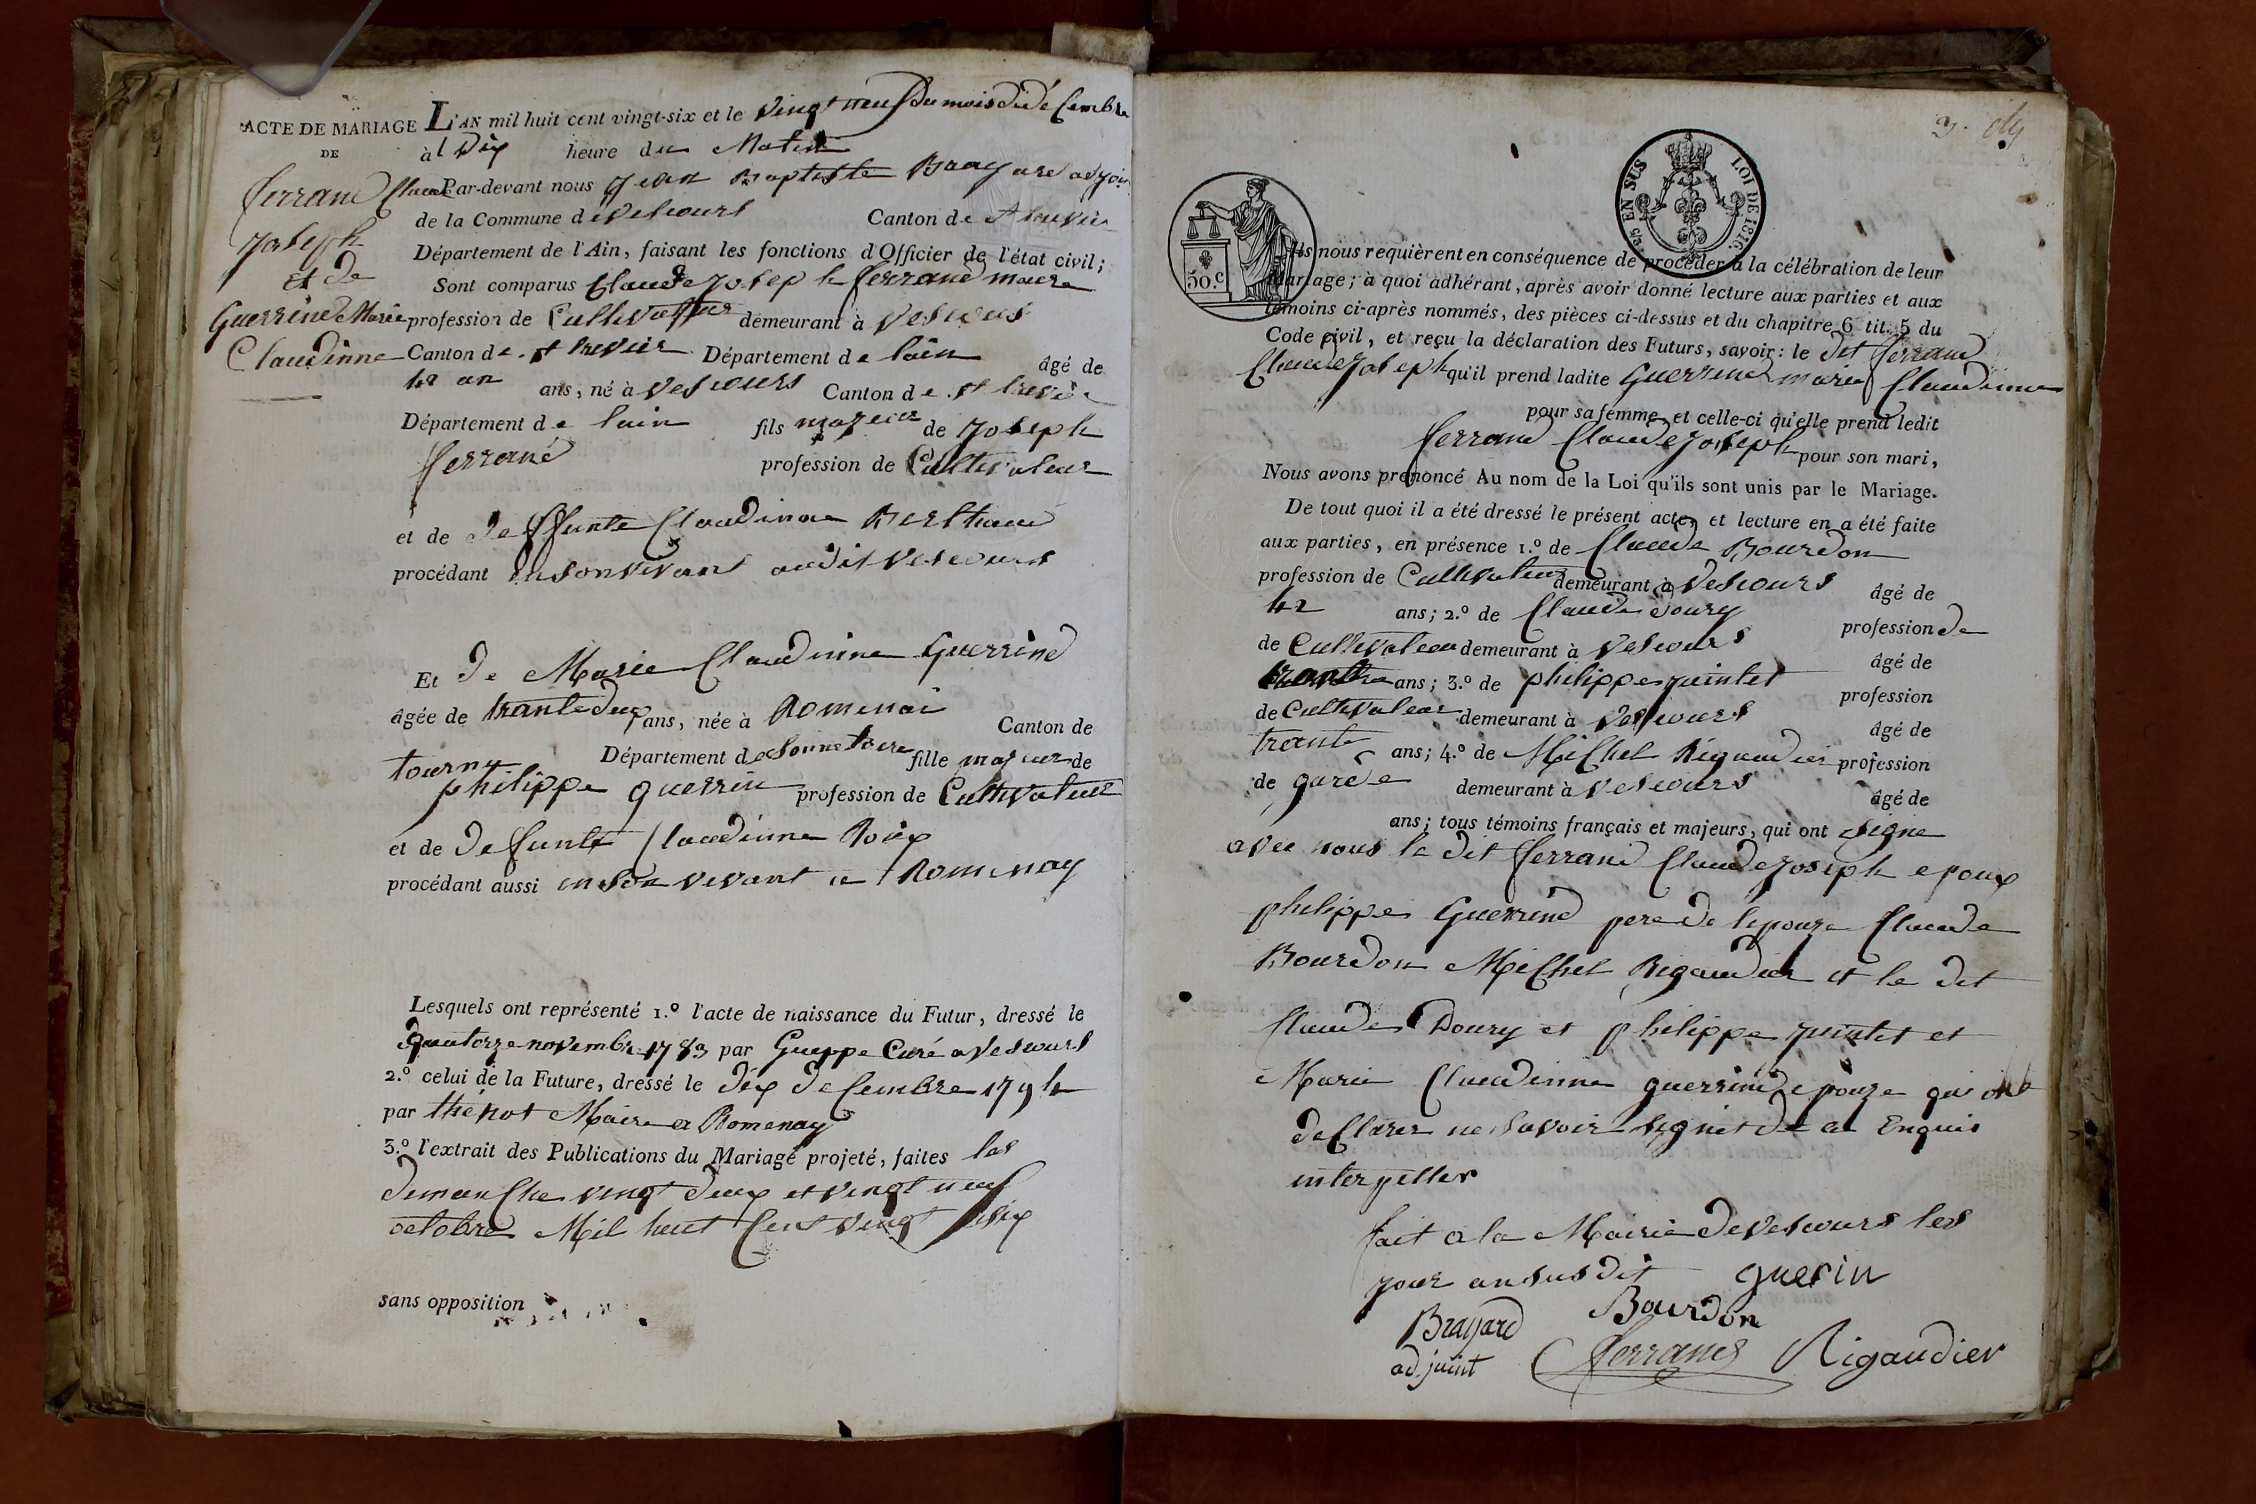 ACTE DE MARIAGE
DE
ferrand Claude
Joseph
et de
Guerrind Marie
Claudinne
L'AN mil huit cent vingt-six et le vingt neuf du mois de décembre
à l dix heure du Matin
Par-devant nous Jean Baptiste Brayard adjoint
de la Commune de Vescours Canton de St trevier
Département de l'Ain, faisant les fonctions d'Officier de l'état civil;
Sont comparus Claude Joseph ferrand maire
profession de Cultivateur demeurant à Vescours
Canton de St trevier Département de lain âgé de
42 an ans, né à Vescours Canton de St trevier
Département de lain fils majeur de Joseph
ferrand profession de Cultivateur
et de deffunte Claudinne Berthaud
procédant en son vivant audit Vescours
Et de Marie Claudinne Guerrind
âgée de trante deux ans, née à Romenai Canton de
tournu Département de Sonnetoire fille majeur de
philippe guerrin profession de Cultivateur
et de defunte Claudinne Roux
procédant aussi en son vivant a Romenay
Lesquels ont représenté 1.º l'acte de naissance du Futur, dressé le
quatorze novembre 1783 par Guyppe Curé a Vescours
2.º celui de la Future, dressé le dix decembre 1794
par thénot Maire a Romenay
3.º l'extrait des Publications du Mariage projeté, faites les
dimanche vingt deux et vingt neuf
octobre Mil huit Cent vingt six
sans opposition
3.
25 EN SUS LOI DE 1816
50.C
Ils nous requièrent en conséquence de procéder à la célébration de leur
Mariage; à quoi adhérant, après avoir donné lecture aux parties et aux
témoins ci-après nommés, des pièces ci-dessus et du chapitre 6 tit. 5 du
Code civil, et reçu la déclaration des Futurs, savoir: le dit ferrand
Claude Joseph qu'il prend ladite Guerrind marie Claudinne
pour sa femme, et celle-ci qu'elle prend ledit
ferrand Claude Joseph pour son mari,
Nous avons prononcé Au nom de la Loi qu'ils sont unis par le Mariage.
De tout quoi il a été dressé le présent acte, et lecture en a été faite
aux parties, en présence 1.º de Claude Bourdon
profession de Cultivateur demeurant à Vescours âgé de
42 ans; 2.º de Claude Doury profession de
de Cultivateur demeurant à Vescours âgé de
ans; 3.º de philippe puintet profession
de Cultivateur demeurant à Vescours âgé de
trante ans; 4.º de Michel Rigaudier profession
de garde demeurant à Vescours âgé de
ans; tous témoins français et majeurs, qui ont signe
avec nous le dit ferrand Claude Joseph epoux
philippe Guerrind pere de lepouze Claude
Bourdon Michel Rigaudier et le dit
Claude Doury et philippe puintet et
Marie Claudinne guerrind epouze qui ont
declarer ne savoir signer de ce Enquis
interpeller
fait a la Mairie de Vescours les
jour an susdit guerin
Brayard Bourdon
adjuint ferrand Rigaudier